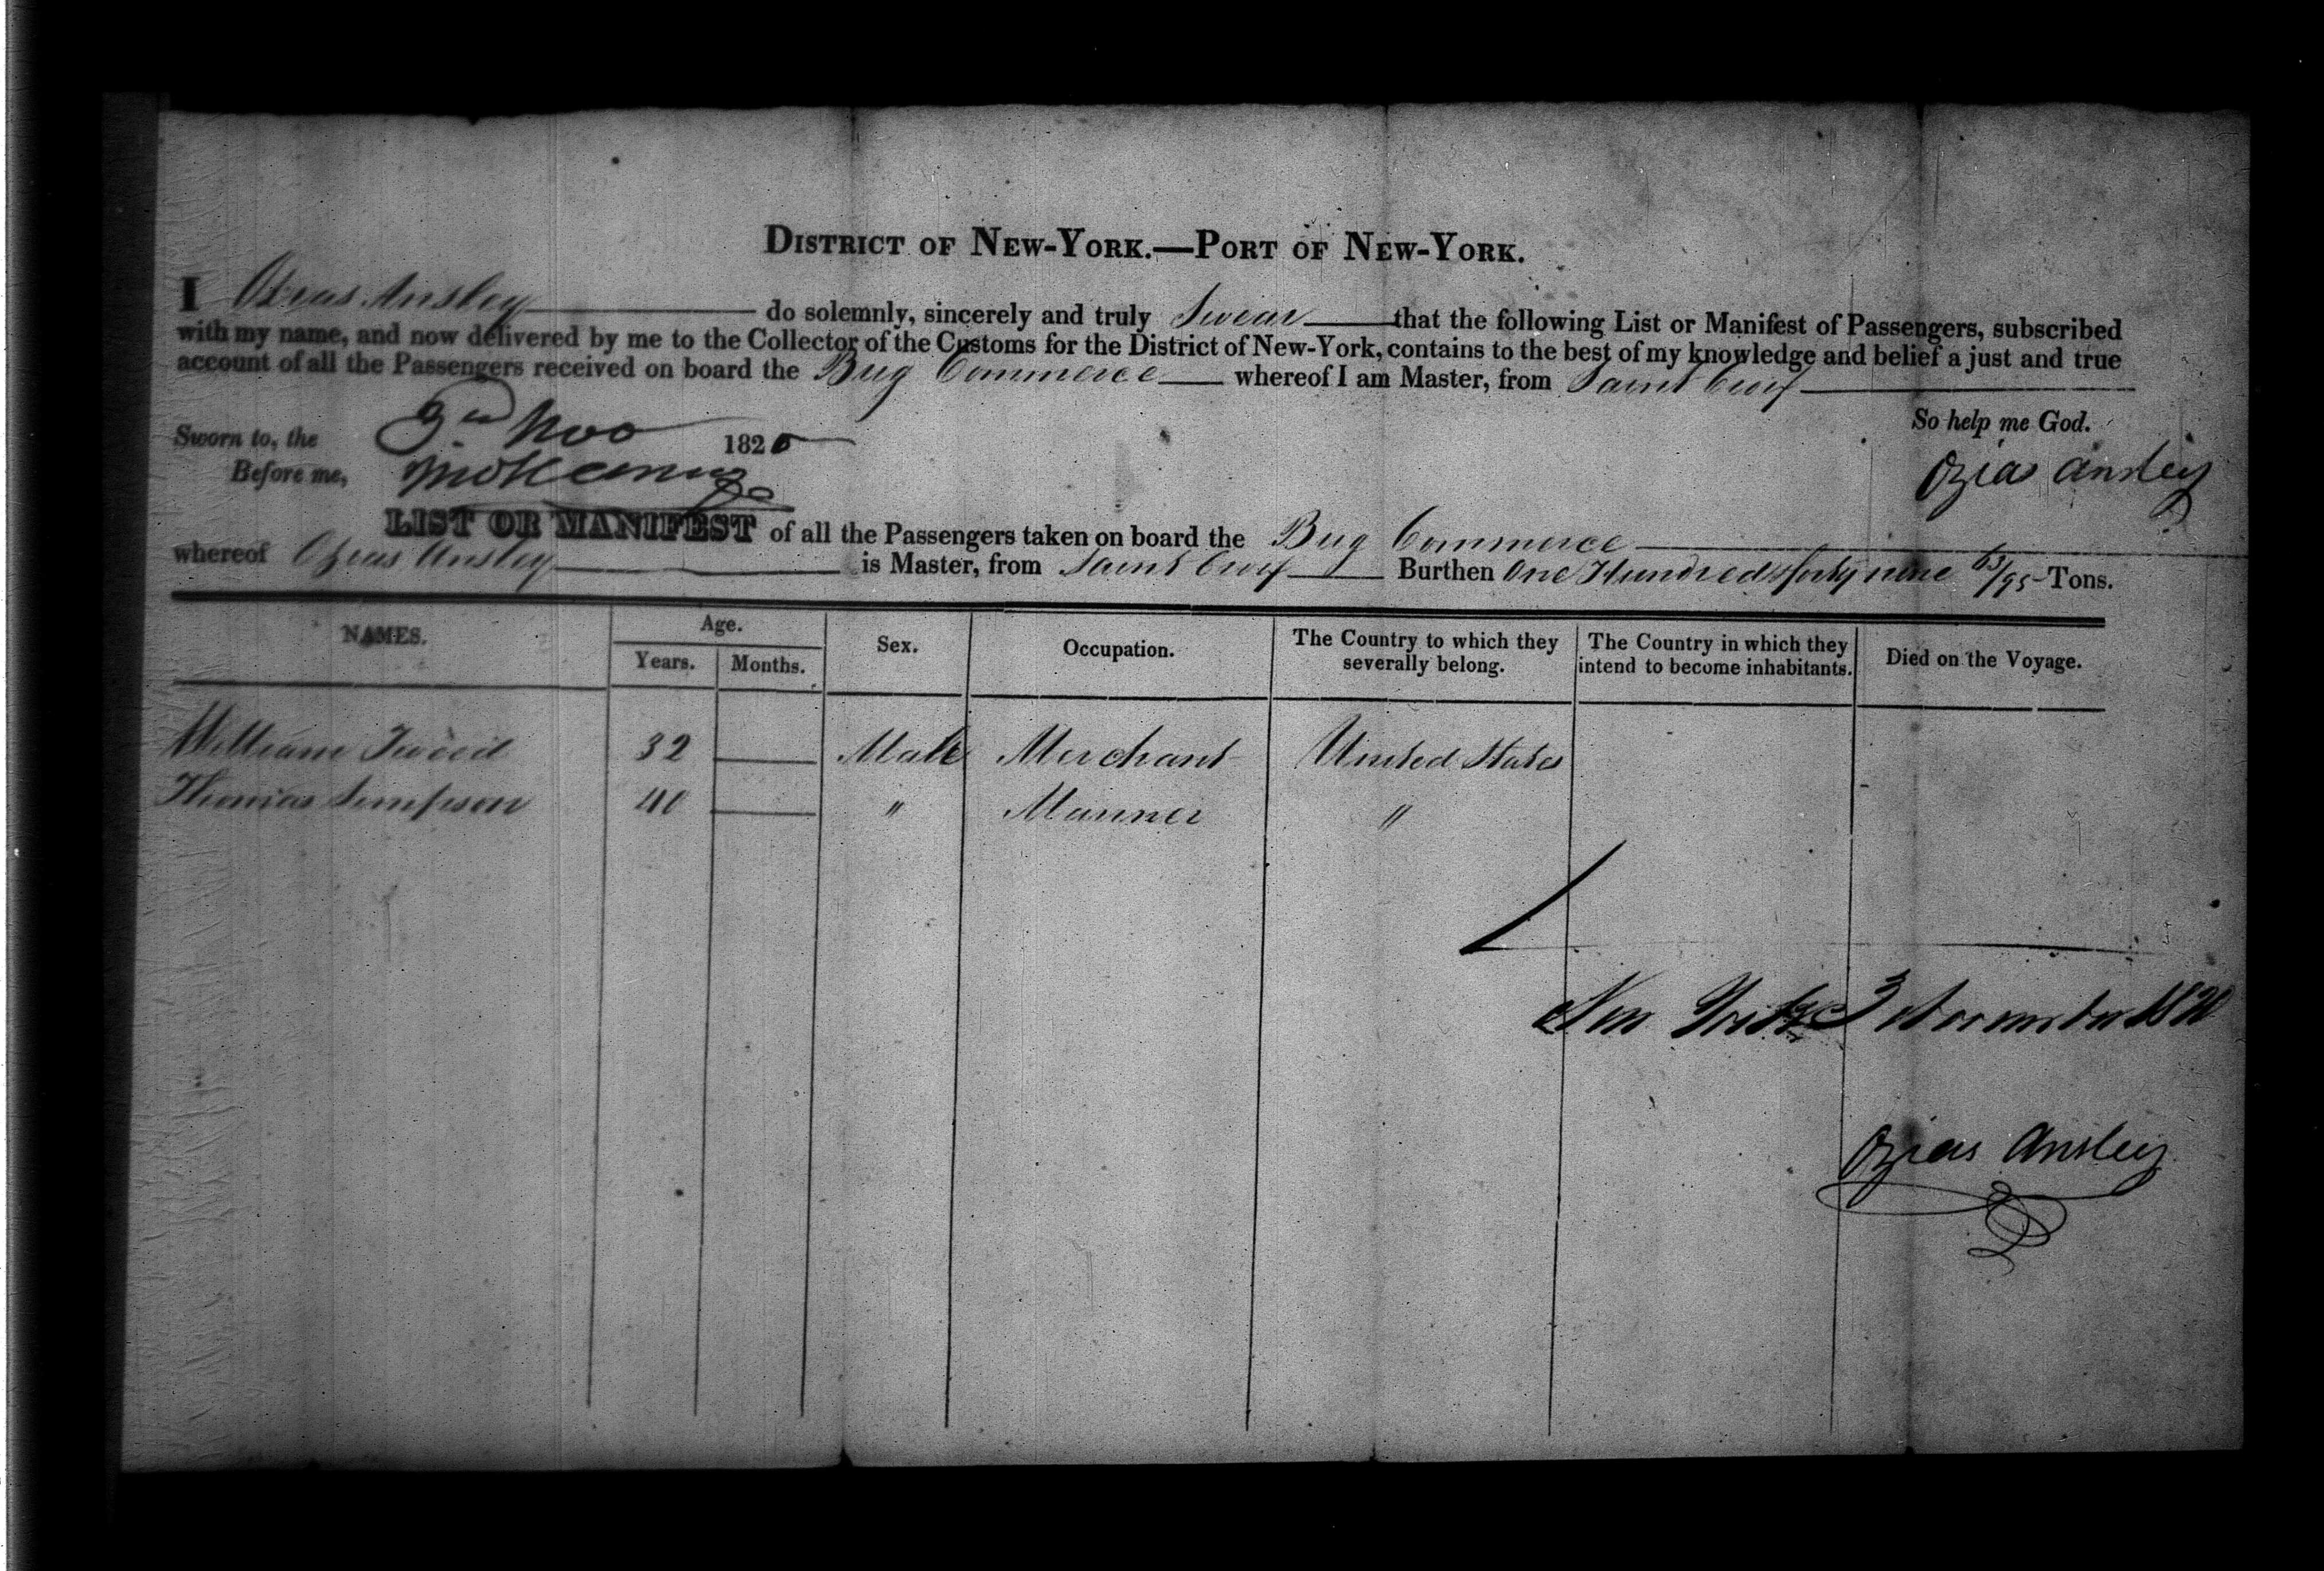 DISTRICT OF NEW-YORK.—PORT OF NEW-YORK.
I Ozias Ansley do solemnly, sincerely and truly Swear that the following List or Manifest of Passengers, subscribed
with my name, and now delivered by me to the Collector of the Customs for the District of New-York, contains to the best of my knowledge and belief a just and true
account of all the Passengers received on board the Brig Commerce whereof I am Master, from Saint Croix
So help me God.
Sworn to, the 3rd Nov 1820
Before me,
Ozias Ansley
LIST OR MANIFEST of all the Passengers taken on board the Brig Commerce
whereof Ozias Ansley is Master, from Saint Croix Burthen One Hundred & forty nine 63/95 Tons.
NAMES. Age. Sex. Occupation. The Country to which they severally belong. The Country in which they intend to become inhabitants. Died on the Voyage.
Years. Months.
William Tweed 32 — Male Merchant United States
Thomas Simpson 40 — " Mariner "
New York 3 November 1820
Ozias Ansley